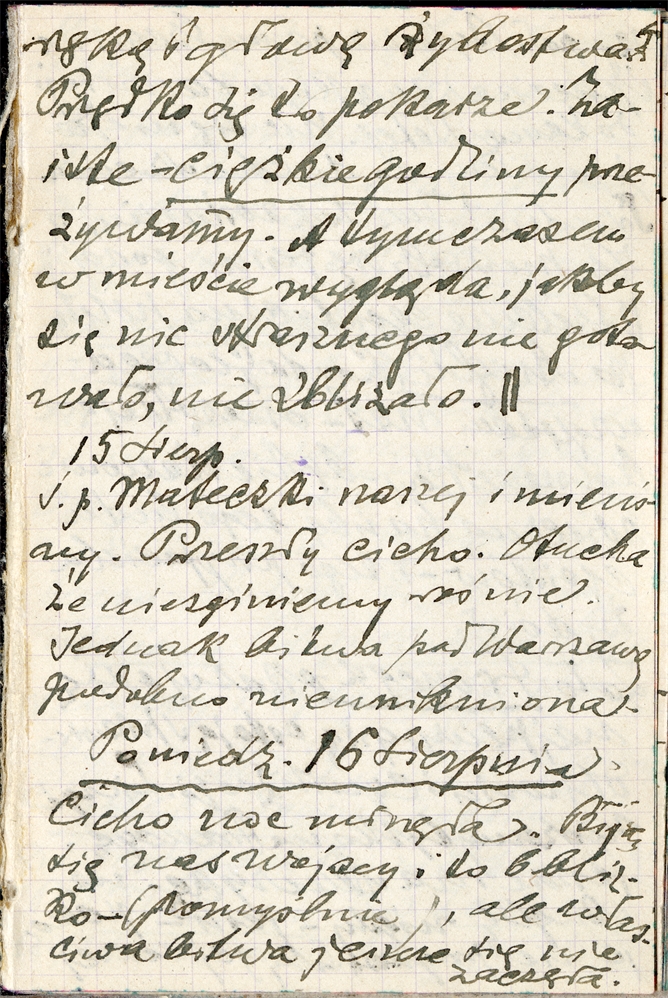 ręką i głową Żydostwa
Prędko się to pokarze. Za-
iste - ciężkie godziny prze-
żywamy. A tymczasem
w mieście wygląda, jakby
się nic strasznego nie goto-
wało, nie zbliżało. ||
15 Sierp.
ś. p. Mateczki naszej imieni-
ny. Przeszły cicho. Otucha
że niezginiemy rośnie.
Jednak bitwa pod Warszawą
podobno nieunikniona.
Poniedz. 16 Sierpnia
Cicho noc minęła. Biją
się nas wojacy i to b. bliz-
ko - (pomyślnie), ale właś-
ciwa bitwa jeszcze się nie
zaczęła.